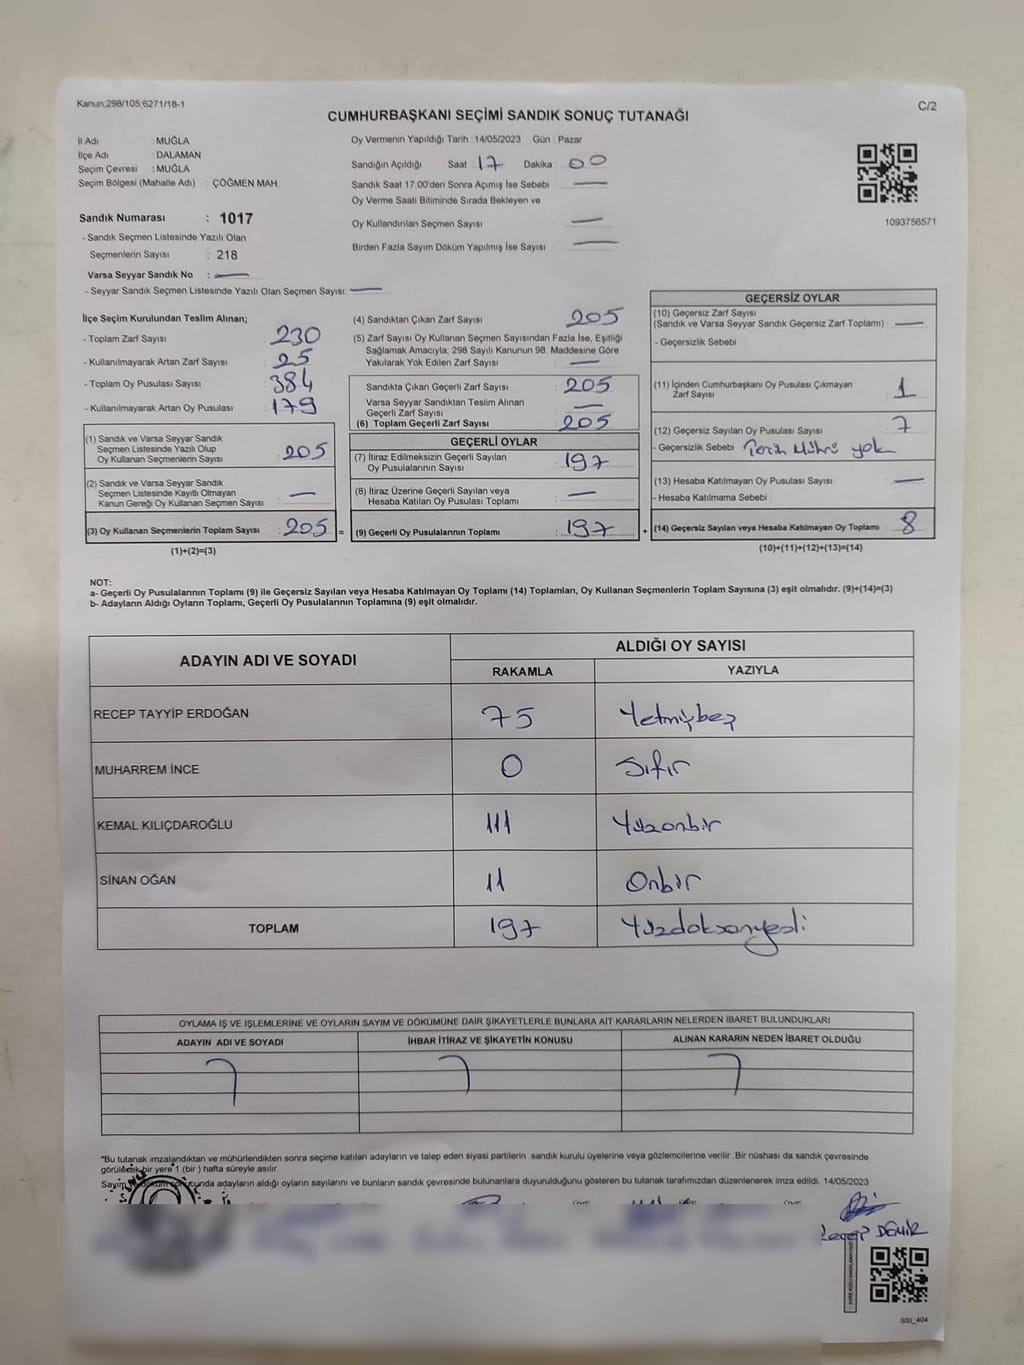 Kanun;298/105;6271/18-1
C/2
CUMHURBAŞKANI SEÇİMİ SANDIK SONUÇ TUTANAĞI
İl Adı : MUĞLA
İlçe Adı : DALAMAN
Seçim Çevresi : MUĞLA
Seçim Bölgesi (Mahalle Adı) : ÇÖĞMEN MAH.
Sandık Numarası : 1017
- Sandık Seçmen Listesinde Yazılı Olan
Seçmenlerin Sayısı : 218
Varsa Seyyar Sandık No : —
- Seyyar Sandık Seçmen Listesinde Yazılı Olan Seçmen Sayısı: —
Oy Vermenin Yapıldığı Tarih : 14/05/2023 Gün : Pazar
Sandığın Açıldığı Saat 17 Dakika : 00
Sandık Saat 17.00'den Sonra Açımış İse Sebebi : —
Oy Verme Saati Bitiminde Sırada Bekleyen ve
Oy Kullandırılan Seçmen Sayısı : —
Birden Fazla Sayım Döküm Yapılmış İse Sayısı : —
1093756571
İlçe Seçim Kurulundan Teslim Alınan;
- Toplam Zarf Sayısı : 230
- Kullanılmayarak Artan Zarf Sayısı : 25
- Toplam Oy Pusulası Sayısı : 384
- Kullanılmayarak Artan Oy Pusulası : 179
(1) Sandık ve Varsa Seyyar Sandık
Seçmen Listesinde Yazılı Olup
Oy Kullanan Seçmenlerin Sayısı : 205
(2) Sandık ve Varsa Seyyar Sandık
Seçmen Listesinde Kayıtlı Olmayan
Kanun Gereği Oy Kullanan Seçmen Sayısı : —
(3) Oy Kullanan Seçmenlerin Toplam Sayısı : 205 =
(1)+(2)=(3)
(4) Sandıktan Çıkan Zarf Sayısı : 205
(5) Zarf Sayısı Oy Kullanan Seçmen Sayısından Fazla İse, Eşitliği
Sağlamak Amacıyla; 298 Sayılı Kanunun 98. Maddesine Göre
Yakılarak Yok Edilen Zarf Sayısı : —
Sandıkta Çıkan Geçerli Zarf Sayısı : 205
Varsa Seyyar Sandıktan Teslim Alınan
Geçerli Zarf Sayısı : —
(6) Toplam Geçerli Zarf Sayısı : 205
GEÇERLİ OYLAR
(7) İtiraz Edilmeksizin Geçerli Sayılan
Oy Pusulalarının Sayısı : 197
(8) İtiraz Üzerine Geçerli Sayılan veya
Hesaba Katılan Oy Pusulası Toplamı : —
(9) Geçerli Oy Pusulalarının Toplamı : 197 +
GEÇERSİZ OYLAR
(10) Geçersiz Zarf Sayısı
(Sandık ve Varsa Seyyar Sandık Geçersiz Zarf Toplamı) : —
- Geçersizlik Sebebi :
(11) İçinden Cumhurbaşkanı Oy Pusulası Çıkmayan
Zarf Sayısı : 1
(12) Geçersiz Sayılan Oy Pusulası Sayısı : 7
- Geçersizlik Sebebi : Tercih Mührü yok
(13) Hesaba Katılmayan Oy Pusulası Sayısı : —
- Hesaba Katılmama Sebebi :
(14) Geçersiz Sayılan veya Hesaba Katılmayan Oy Toplamı : 8
(10)+(11)+(12)+(13)=(14)
NOT:
a- Geçerli Oy Pusulalarının Toplamı (9) ile Geçersiz Sayılan veya Hesaba Katılmayan Oy Toplamı (14) Toplamları, Oy Kullanan Seçmenlerin Toplam Sayısına (3) eşit olmalıdır. (9)+(14)=(3)
b- Adayların Aldığı Oyların Toplamı, Geçerli Oy Pusulalarının Toplamına (9) eşit olmalıdır.
ADAYIN ADI VE SOYADI ALDIĞI OY SAYISI
RAKAMLA YAZIYLA
RECEP TAYYİP ERDOĞAN 75 Yetmişbeş
MUHARREM İNCE 0 Sıfır
KEMAL KILIÇDAROĞLU 111 Yüzonbir
SİNAN OĞAN 11 Onbir
TOPLAM 197 Yüzdoksanyedi
OYLAMA İŞ VE İŞLEMLERİNE VE OYLARIN SAYIM VE DÖKÜMÜNE DAİR ŞİKAYETLERLE BUNLARA AİT KARARLARIN NELERDEN İBARET BULUNDUKLARI
ADAYIN ADI VE SOYADI İHBAR İTİRAZ VE ŞİKAYETİN KONUSU ALINAN KARARIN NEDEN İBARET OLDUĞU
*Bu tutanak imzalandıktan ve mühürlendikten sonra seçime katılan adayların ve talep eden siyasi partilerin sandık kurulu üyelerine veya gözlemcilerine verilir .Bir nüshası da sandık çevresinde
görülecek bir yere 1 (bir ) hafta süreyle asılır.
Sayım ve döküm sonucunda adayların aldığı oyların sayılarını ve bunların sandık çevresinde bulunanlara duyurulduğunu gösteren bu tutanak tarafımızdan düzenlenerek imza edildi. 14/05/2023
Recep DEMİR
SSI_404